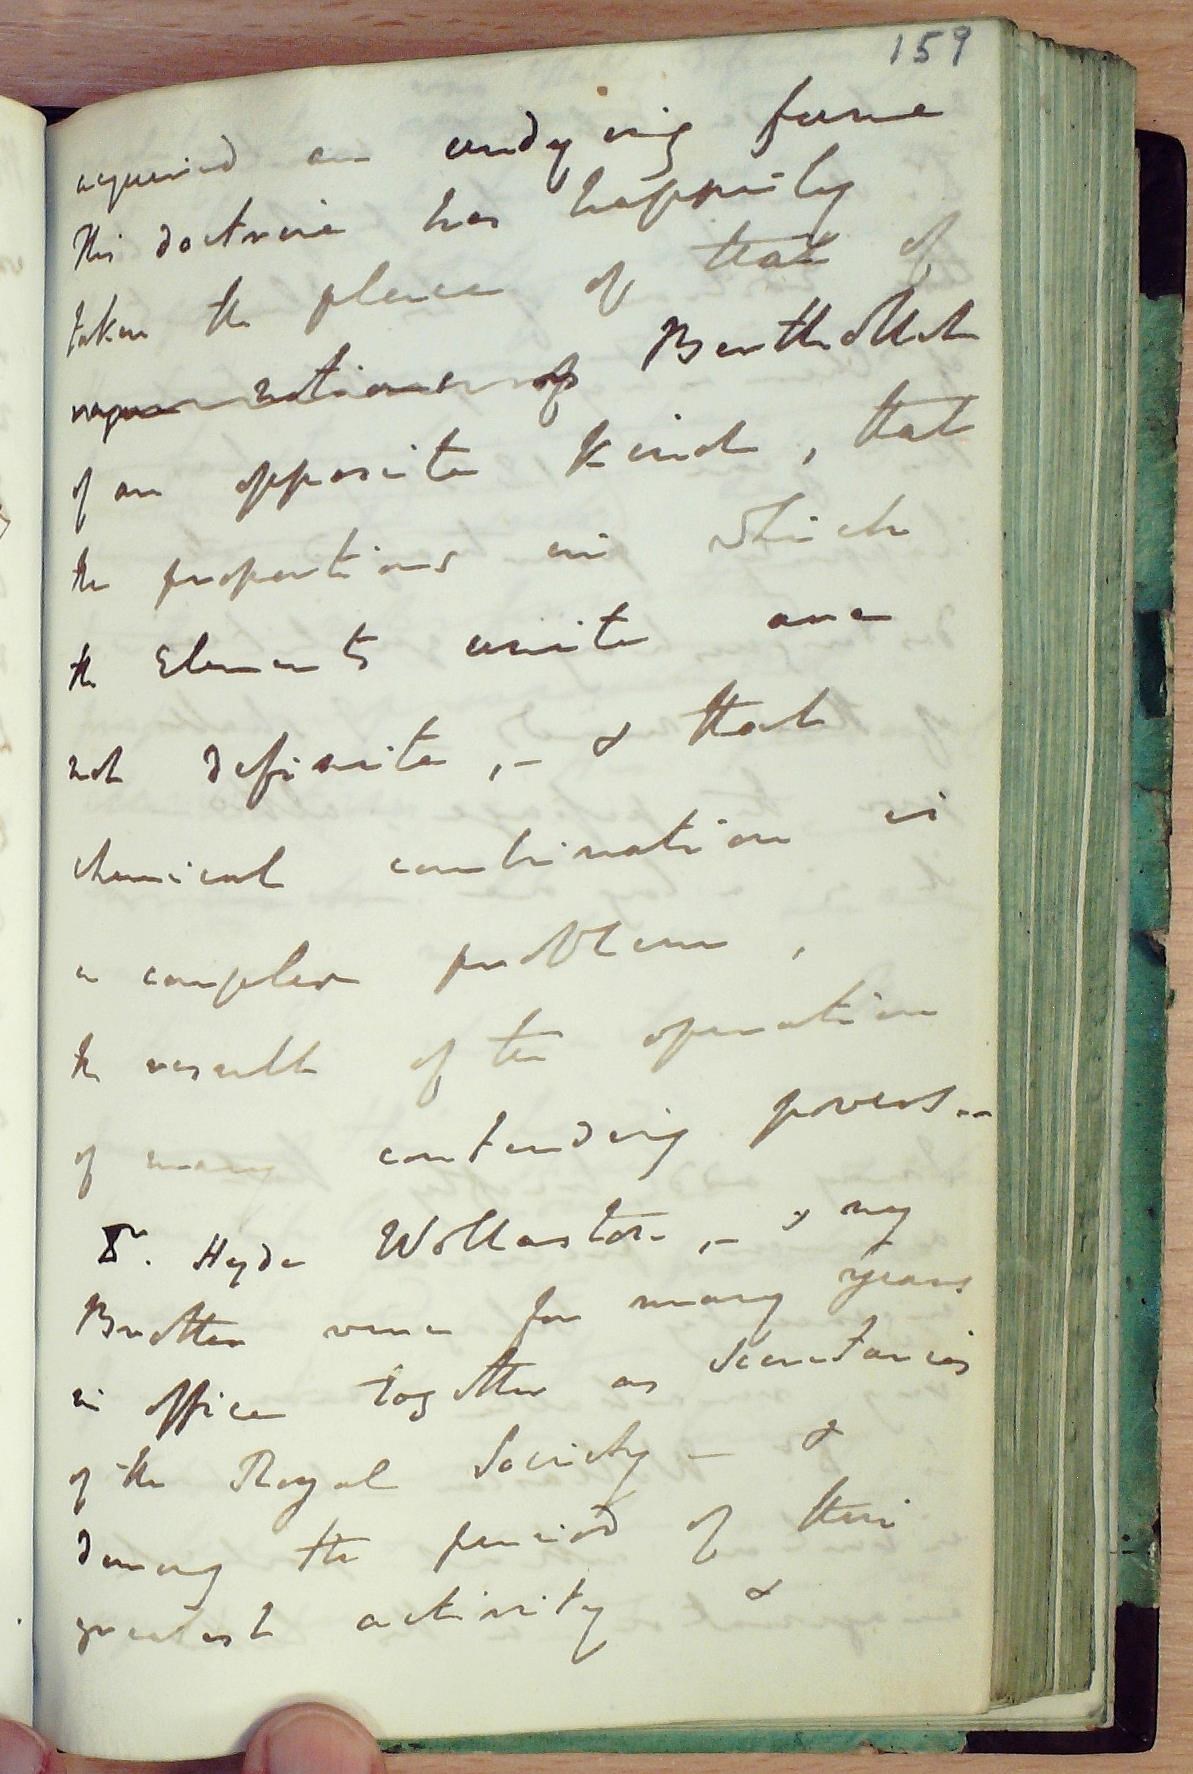 159
acquired an undying fame
This doctrine has happily
taken the place of that of
vague notions of Berthollet
of an opposite kind, that
the proportions in which
the Elements unite are
not definite, - & that
chemical combination is
a complex problem,
the result of the operation
of many contending powers --
Dr. Hyde Wollaston, - & my
Brother were for many years
in office together as Secretaries
of the Royal Society - &
during the period of their
greatest activity &